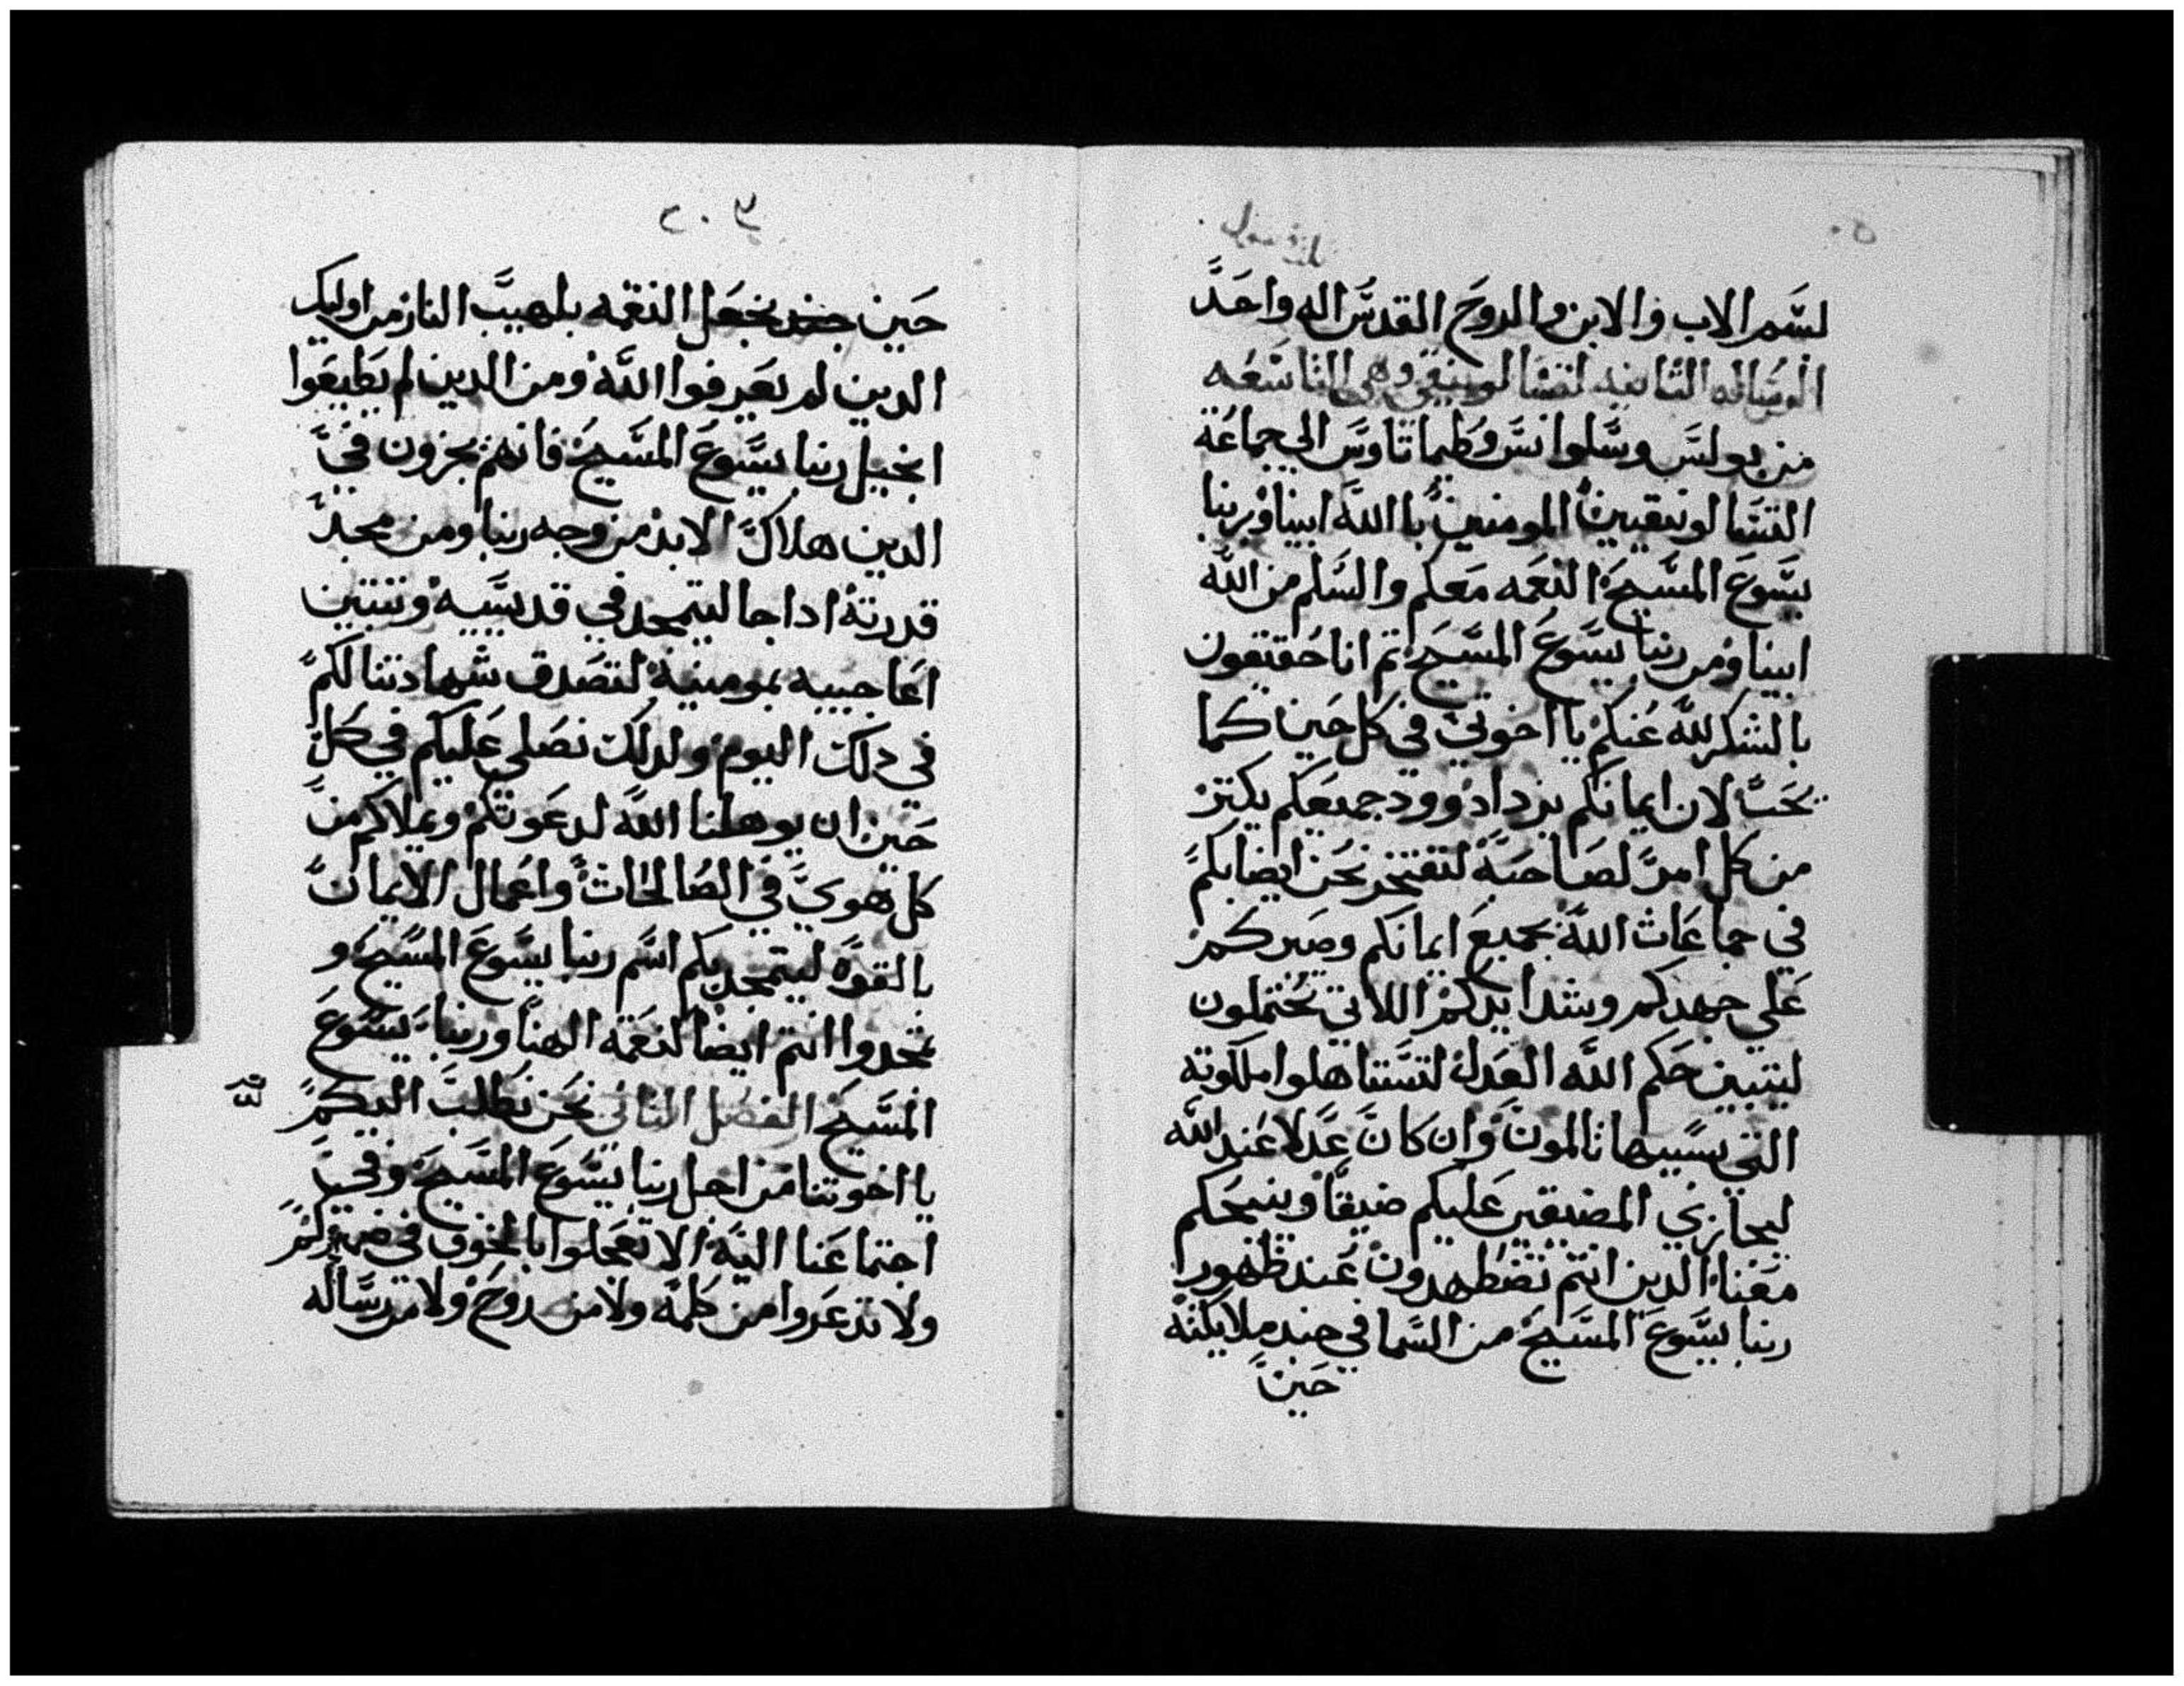 بسم الاب والابن والروح القدس اله واحد
الرساله الثانيه لتسالونيقي وهي التاسعه
من بولس وسلوانس وطيماتاوس الى جماعة
التسالونيقيين المومنين باالله ابينا وبربنا
يسوع المسيح النعمه معكم والسلم من الله
ابينا ومن ربنا يسوع المسيح ثم انا حقيقون
بالشكر لله عنكم يا اخوتي في كل حين كما
يحب لان ايمانكم يزداد وود جميعكم يكتر
من كل امر لصاحبه لنفتخر نحن ايضا بكم
في جماعات الله بجميع ايمانكم وصبركم
على جهدكم وشدايدكم اللاتي تحتملون
ليتبين حكم الله العدل لتستاهلوا ملكوته
التي بسببها تالمون وان كان عدلا عند الله
ليجازي المضيقين عليكم ضيقا وينيحكم
معنا الدين انتم تضطهدون عند ظهور
ربنا يسوع المسيح من السما في جند ملايكته
حين
٢٠٣
حين يجعل النقمه بلهيب النار من اوليك
الدين لم يعرفوا الله ومن الدين لم يطيعوا
انجيل ربنا يسوع المسيح فانهم يجزون في
الدين هلاك الابد من وجه ربنا ومن مجد
قدرته ادا جا ليتمجد في قديسيه وتتبين
اعاجيبه بمومنيه لتصدق شهادتنا لكم
في دلك اليوم ولدلك نصلي عليكم في كل
حين ان يوهلنا الله لدعوتكم ويملاكم من
كل هوي في الصالحات واعمال الايمان
بالقوه ليتمجد بكم اسم ربنا يسوع المسيح و
تمجدوا انتم ايضا لنعمة الهنا وربنا يسوع
المسيح الفصل الثاني نحن نطلب اليكم
يا اخوتنا من اجل ربنا يسوع المسيح وفي
اجتماعنا اليه الا تعجلوا بالخوف في ضميركم
ولا تدعروا من كلمه ولا من روح ولا من رساله